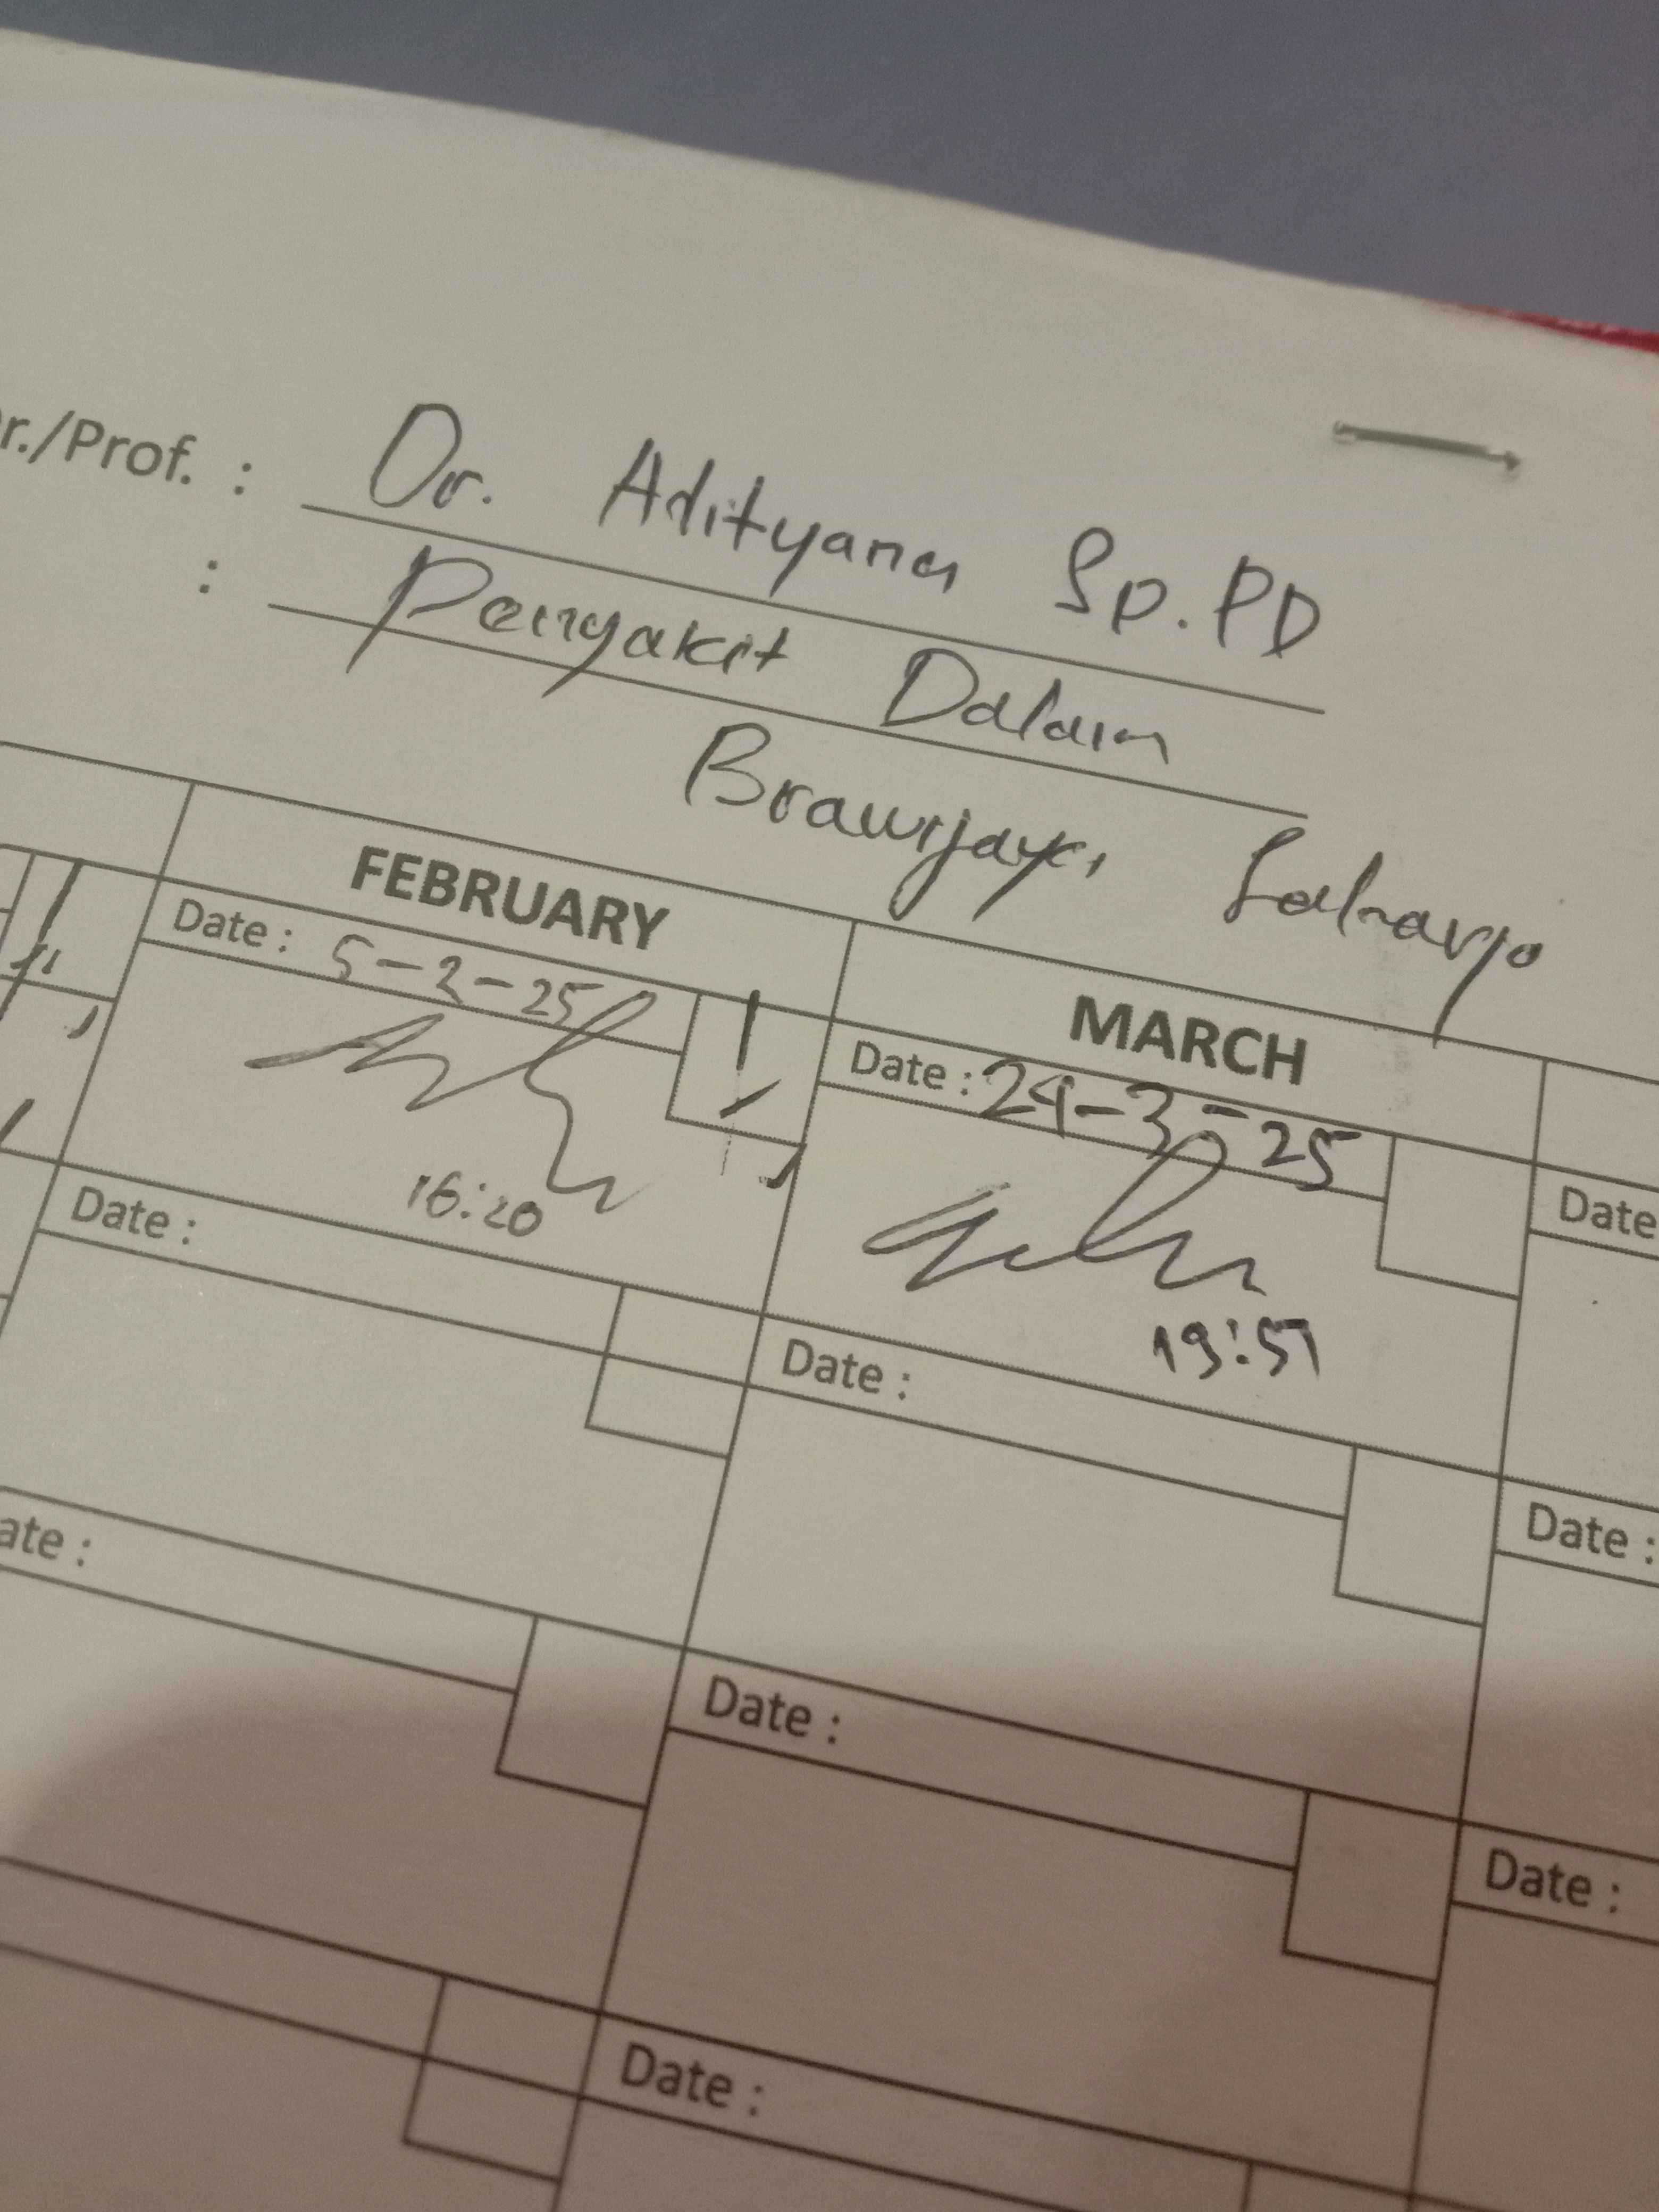 r./Prof. : Dr. Adityana Sp.PD
: Penyakit Dalam
Brawijaya, Saharjo
FEBRUARY
MARCH
Date : 5-2-25
16:20
Date : 24-3-25
19:51
Date
Date :
Date :
Date :
ate :
Date :
Date :
Date :